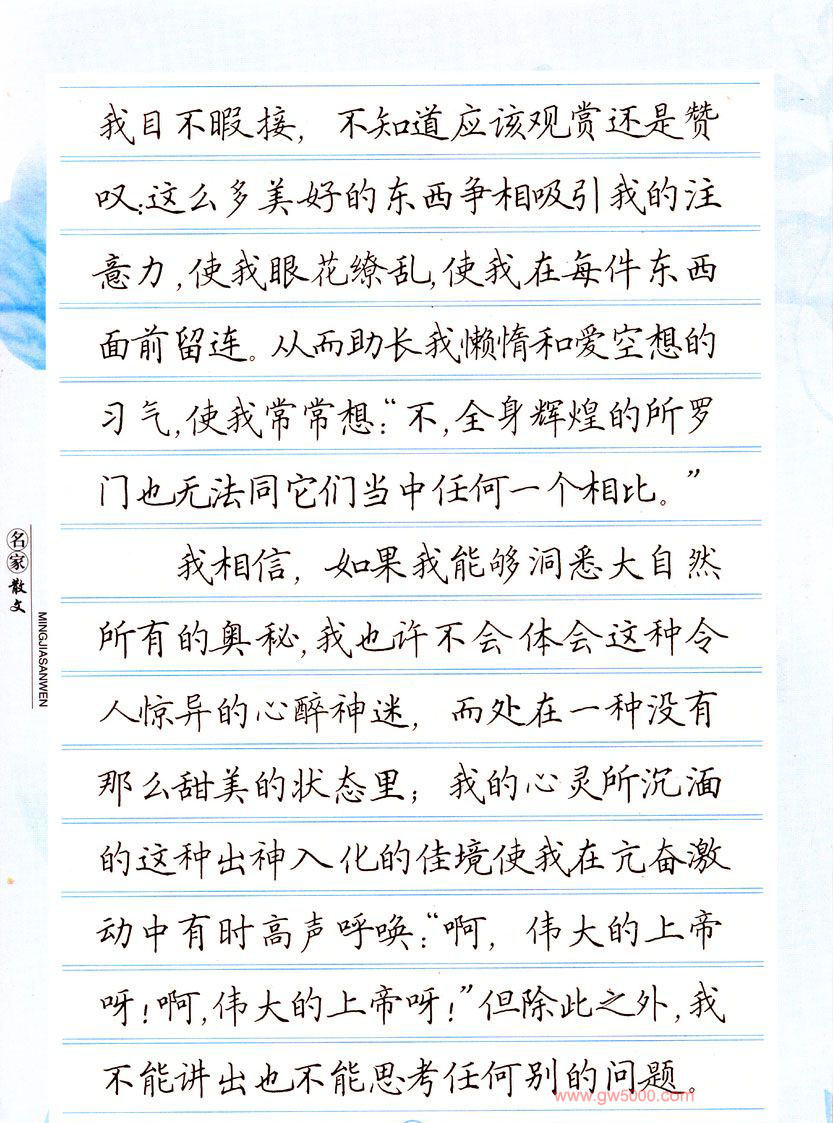 我目不暇接，不知道应该观赏还是赞
叹：这么多美好的东西争相吸引我的注
意力，使我眼花缭乱，使我在每件东西
面前留连。从而助长我懒惰和爱空想的
习气，使我常常想：“不，全身辉煌的所罗
门也无法同它们当中任何一个相比。”
我相信，如果我能够洞悉大自然
所有的奥秘，我也许不会体会这种令
人惊异的心醉神迷，而处在一种没有
那么甜美的状态里；我的心灵所沉湎
的这种出神入化的佳境使我在亢奋激
动中有时高声呼唤：“啊，伟大的上帝
呀！啊，伟大的上帝呀！”但除此之外，我
不能讲出也不能思考任何别的问题。
名家散文
MINGJIASANWEN
www.gw5000.com